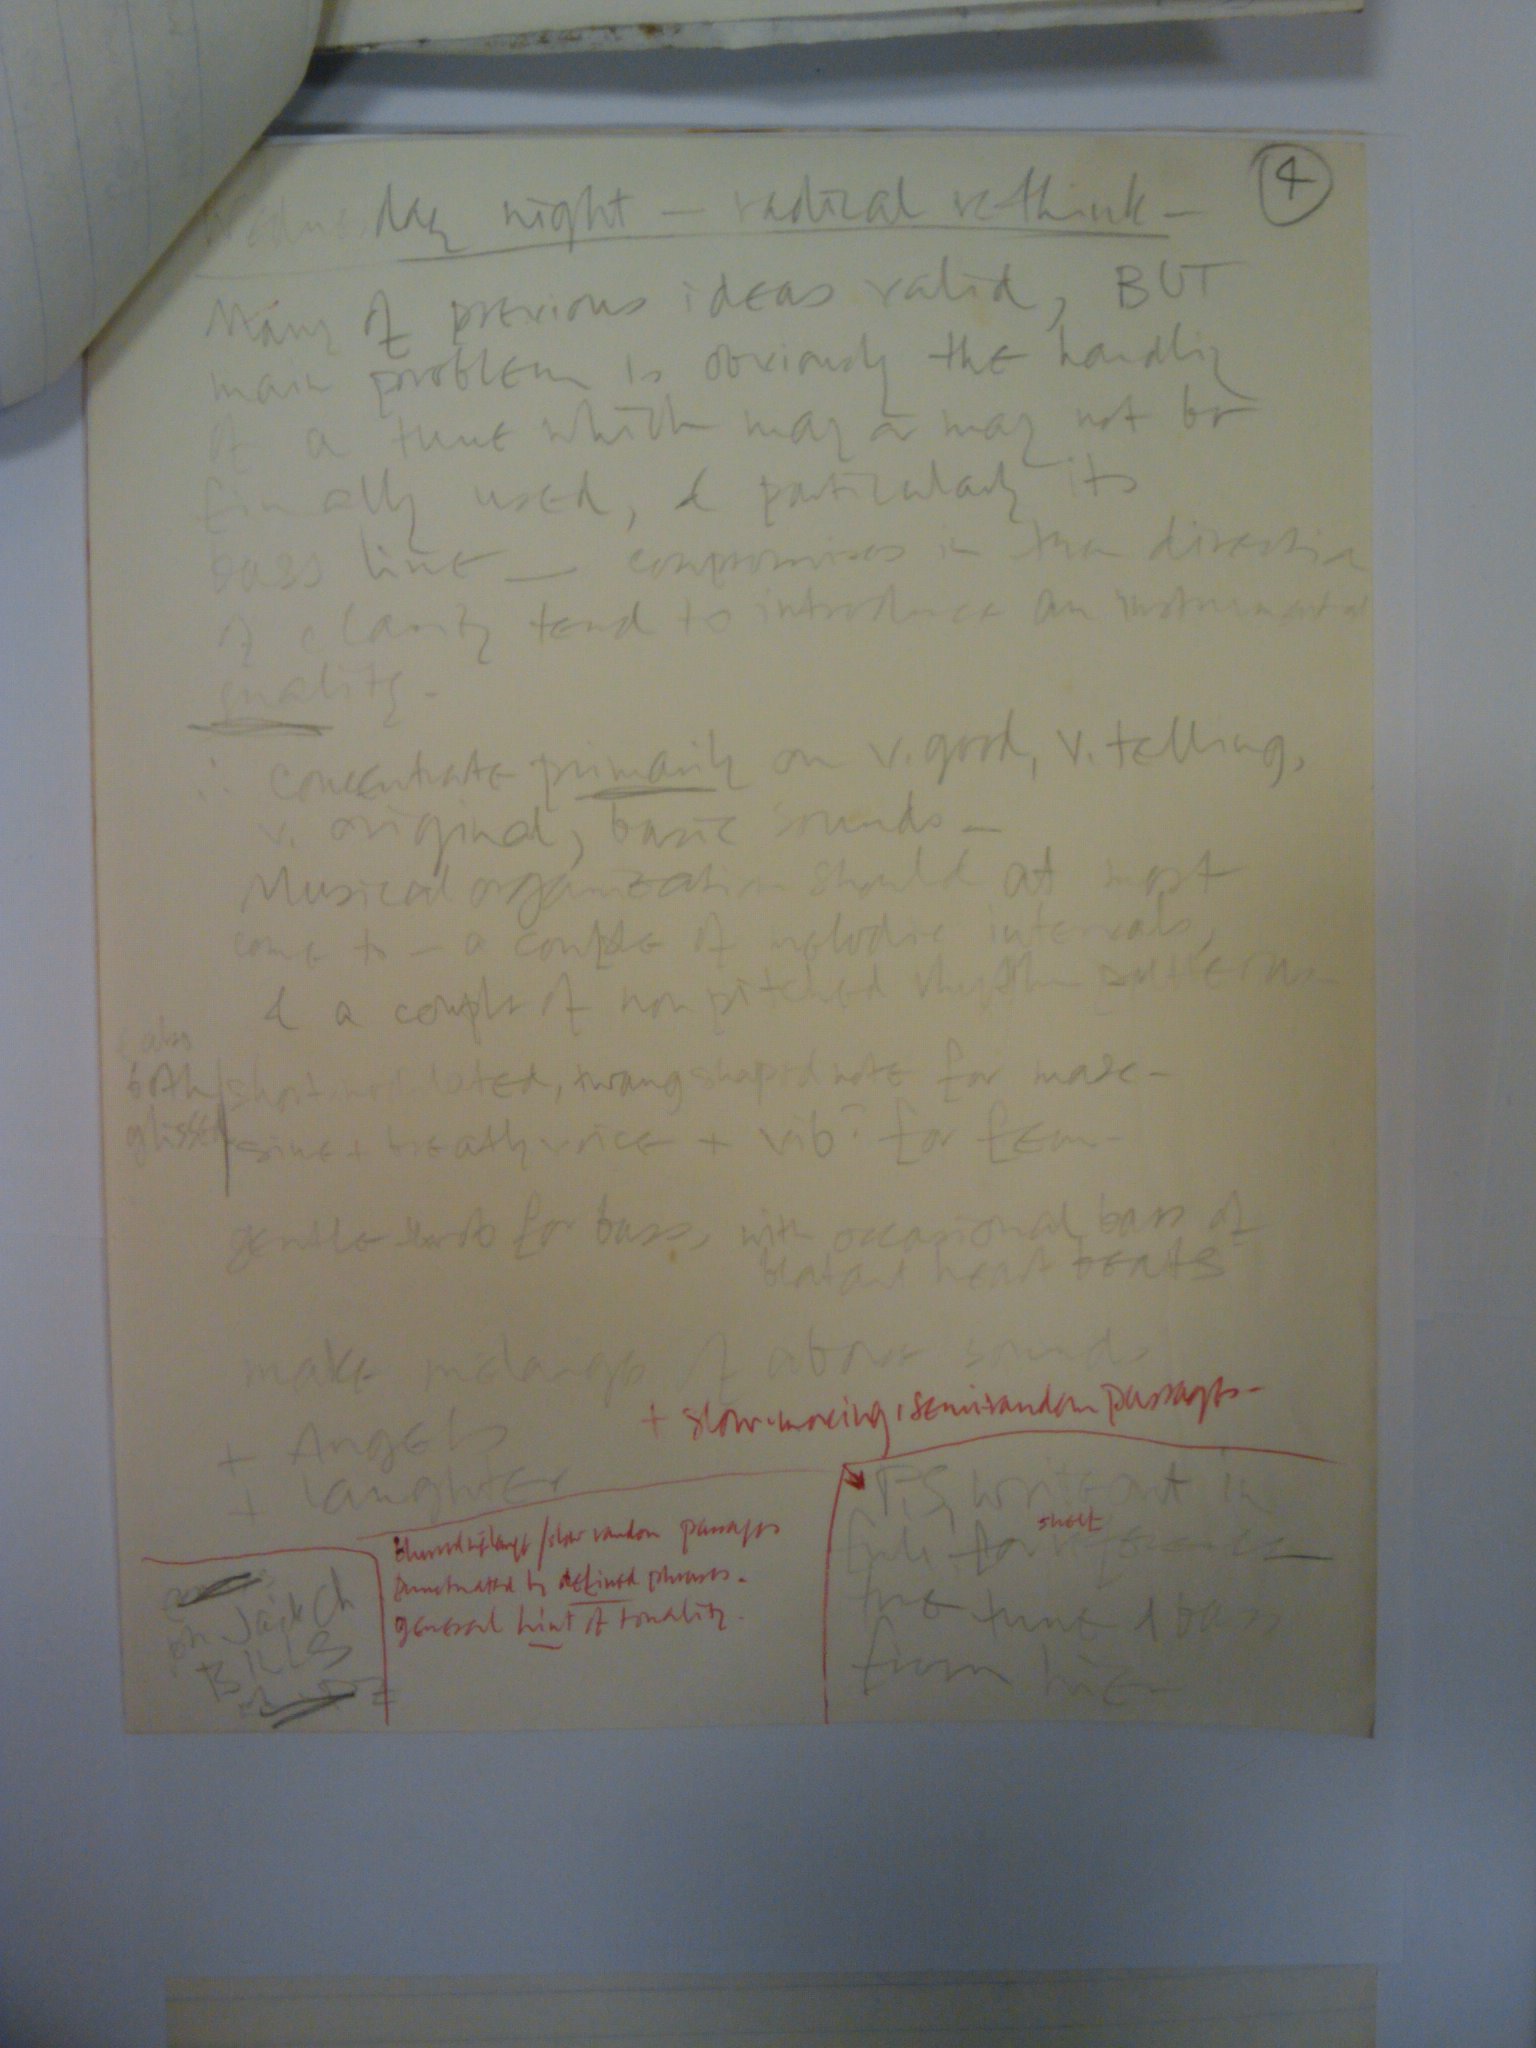 4
Wednesday night — radical rethink —
Many of previous ideas valid, BUT
main problem is obviously the handling
of a tune which may or may not be
finally used, & particularly its
bass line — compromises in the direction
of clarity tend to introduce an instrumental
quality.
∴ concentrate primarily on v. good, v. telling,
v. original, basic sounds —
Musical organization should at most
come to — a couple of melodic intervals,
& a couple of non pitched rhythm patterns
both
glissed
short, twang shaped note for masc —
sine + breathy voice + vib? for fem —
gentle thuds for bass, with occasional bars of
blatant heart beats
make melanges of above sounds
+ slow-moving, semi-random passages —
+ Angels
+ laughter
/slow random passages
punctuated by defined phrases.
general hint of tonality.
P.S. write out in
full short
the tune & bass
from here
ph. Jack
BILLS